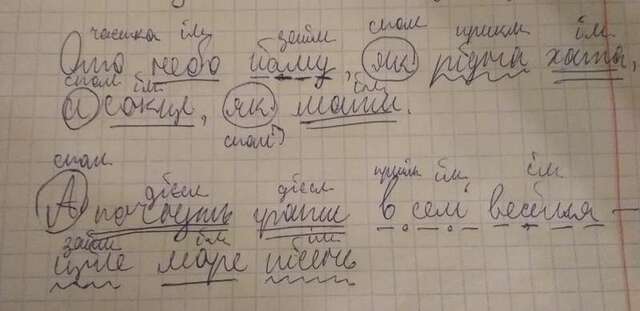 частка ім займ спол прикм ім
Ото небо йому, як рідна хата,
спол ім ім
а сонце, як мати.
спол
спол дієсл дієсл прийм ім ім
А почнуть грати в селі весілля —
займ ім ім
ціле море пісень